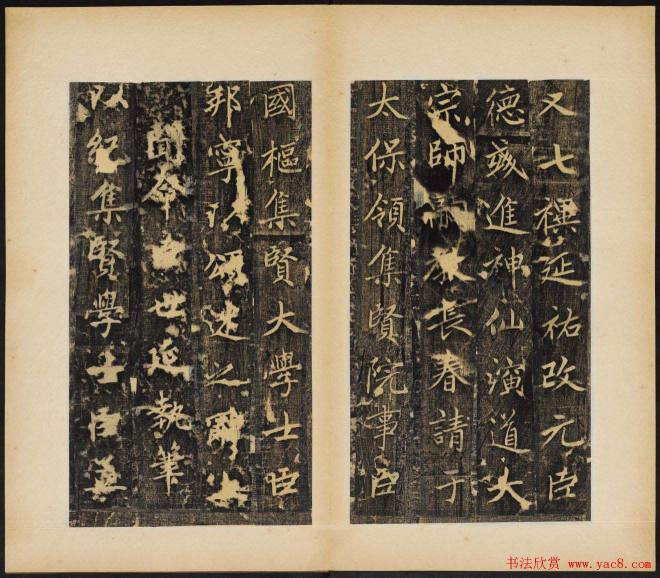 又七禩延祐改元臣
德彧進神仙演道大
宗師 長春請于
太保領集賢院事臣
國樞集賢大學士臣
邦寧以頌述之辭
聞命 世延執筆
以紀集賢學士臣孟
书法欣赏 www.yac8.com